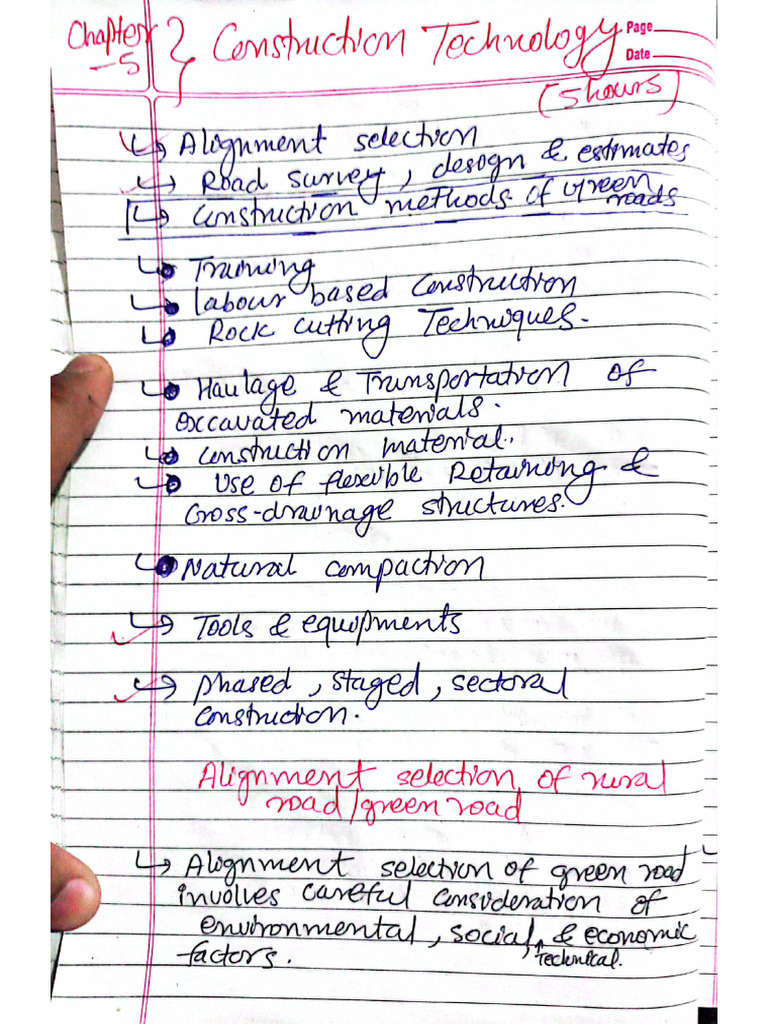 Chapter
-5
Construction Technology
Page
Date
(5 hours)
↳ Alignment selection
↳ Road survey, design & estimates
↳ Construction methods of green roads
↳ Training
↳ Labour based construction
↳ Rock cutting Techniques.
↳ Haulage & Transportation of
excavated materials.
↳ construction material.
↳ Use of flexible Retaining &
Cross-drainage structures.
↳ Natural compaction
↳ Tools & equipments
↳ phased, staged, sectoral
construction.
Alignment selection of rural
road/green road
↳ Alignment selection of green road
involves careful consideration of
environmental, social, technical & economic
factors.